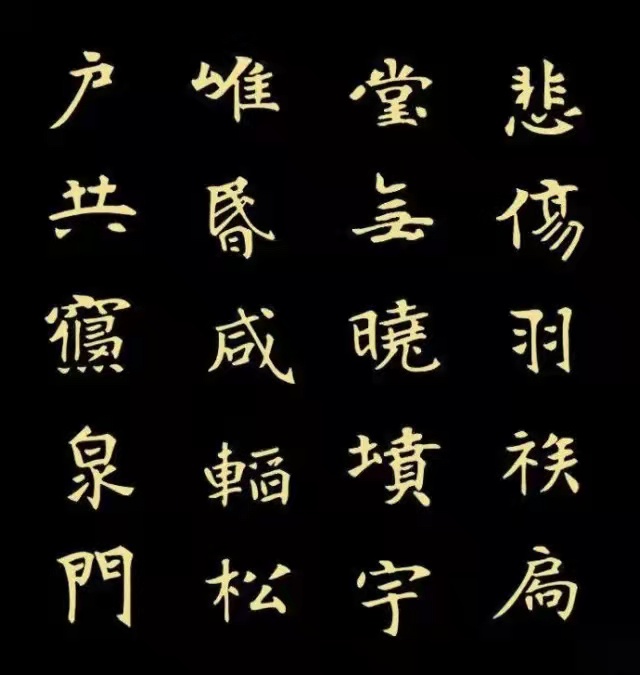 悲傷羽族扃
堂無曉墳宇
唯昏咸韜松
户共竄泉門